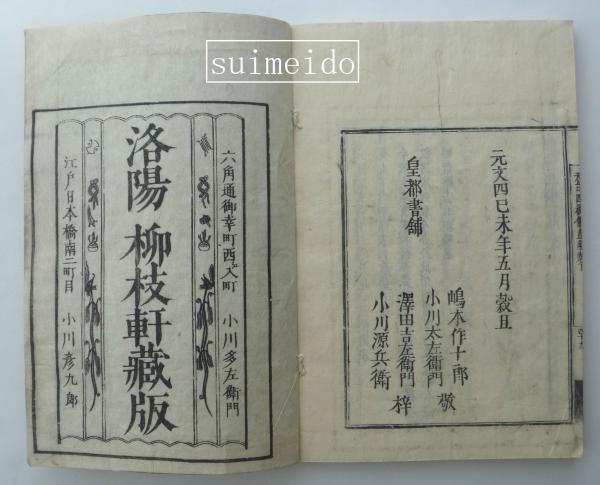 suimeido
元文四己未年五月穀旦
皇都書舗
嶋本作十郎
小川太左衛門
澤田吉左衛門
小川源兵衛
敬梓
六角通御幸町西入町 小川多左衛門
洛陽 柳枝軒藏版
江戸日本橋南二町目 小川彦九郎